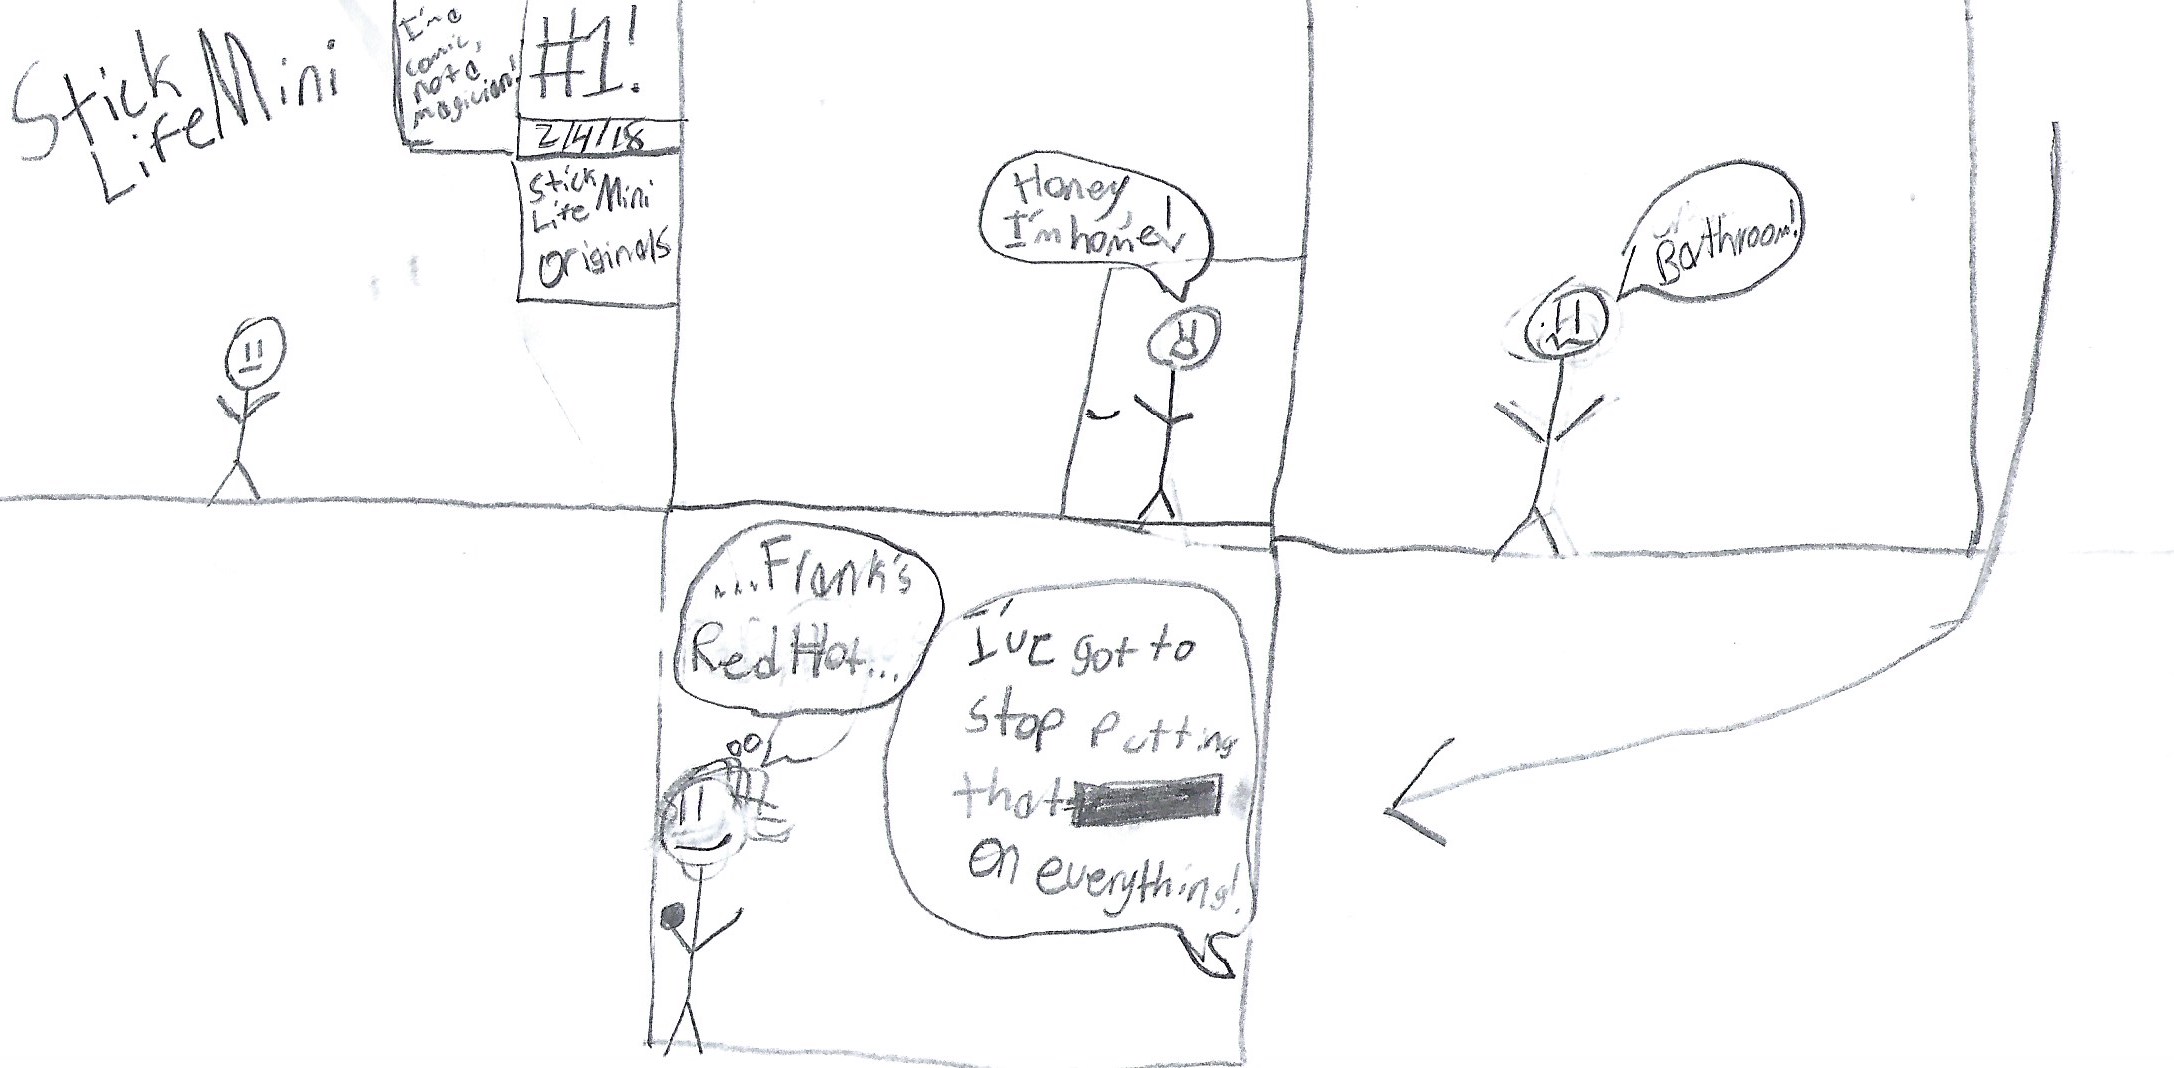 Stick
Life Mini
I'm a
comic,
not a
magician!
#1!
2/4/18
Stick
Life Mini
Originals
Honey,
I'm home!
Bathroom!
...Frank's
Red Hot...
I've got to
stop putting
that
on everything!